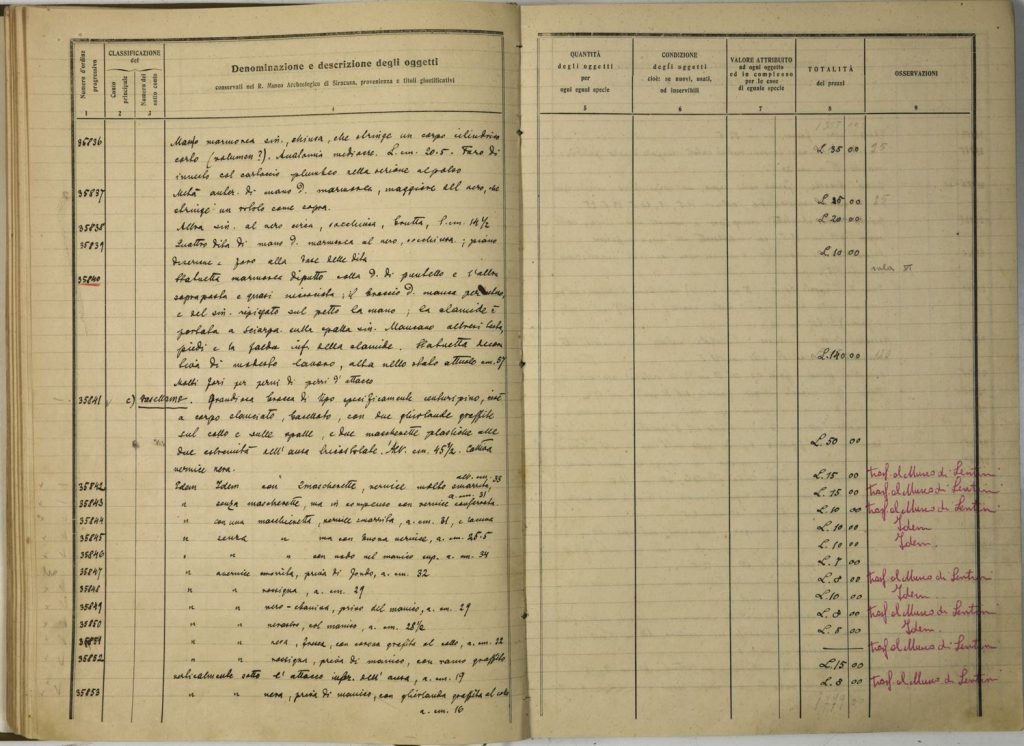 Numero d'ordine progressivo
CLASSIFICAZIONE del
Conto principale
Numero del sotto conto
Denominazione e descrizione degli oggetti
conservati nel R. Museo Archeologico di Siracusa, provenienza e titoli giustificativi
1 2 3 4
35836 Mano marmorea sin., chiusa, che stringe un corpo cilindrico
corto (volumen?). Anatomia mediocre. L. cm. 20.5. Foro di
innesto col cartoccio plumbeo nella sezione al polso
35837 Metà anter. di mano d. marmorea, maggiore del vero, che
stringe un rotolo come sopra.
35838 Altra sin. al vero circa, l. cm. 14 1/2
35839 Quattro dita di mano d. marmorea al vero,
e foro alla base delle dita
35840 Statuetta marmorea di putto colla d. di puntello e l'altra
sopraposta e quasi ; il braccio d. manca per intero,
e del sin. ripiegato sul petto la mano; la clamide è
portata a sciarpa sulla spalla sin. Mancano altresì testa,
piedi e la falda inf. della clamide. Statuetta decora-
tiva di modesto lavoro, alta nello stato attuale cm. 57
Molti fori per perni di pezzi d'attacco
35841 c) Vasellame. Grandiosa brocca di tipo specificamente centuripino, cioè
a corpo slanciato, baccellato, con due ghirlande graffite
sul collo e sulle spalle, e due mascherette plastiche alle
due estremità dell'ansa. Alt. cm. 45 1/2. Cattiva
vernice nera.
35842 Idem Idem con 2 mascherette, vernice molto smarrita, alt. cm. 33
35843 " senza mascherette, ma in compenso con vernice conservata a. cm. 31
35844 " con una mascheretta, vernice smarrita, a. cm. 31, e lacuna
35845 " senza " ma con buona vernice, a. cm. 25.5
35846 " " " con nodo nel manico sup. a. cm. 34
35847 " a vernice smarrita, priva di fondo, a. cm. 32
35848 " " rossigna, a. cm. 29
35849 " " nero-, privo del manico, a. cm. 29
35850 " " nerastra, col manico, a. cm. 28 1/2
35851 " " nera, fresca, con corona graffita al collo, a. cm. 22
35852 " " rossigna, priva di manico, con ramo graffito
verticalmente sotto l'attacco infer. dell'ansa, a. cm. 19
35853 " " nera, priva di manico, con ghirlanda graffita al collo
a. cm. 16
QUANTITÀ degli oggetti per ogni egual specie
CONDIZIONE degli oggetti cioè: se nuovi, usati, od inservibili
VALORE ATTRIBUITO ad ogni oggetto ed in complesso per le cose di eguale specie
TOTALITÀ dei prezzi
OSSERVAZIONI
5 6 7 8 9
L. 35 00
L. 25 00
L. 20 00
L. 10 00
sala VI
L. 140 00
L. 50 00
L. 15 00 trasf. al Museo di Lentini
L. 15 00 trasf. al Museo di Lentini
L. 10 00 trasf. al Museo di Lentini
L. 10 00 Idem
L. 10 00 Idem.
L. 7 00
L. 8 00 trasf. al Museo di Lentini
L. 10 00 Idem.
L. 8 00 trasf. al Museo di Lentini
L. 5 00 Idem.
— trasf. al Museo di Lentini
L. 15 00
L. 8 00 trasf. al Museo di Lentini